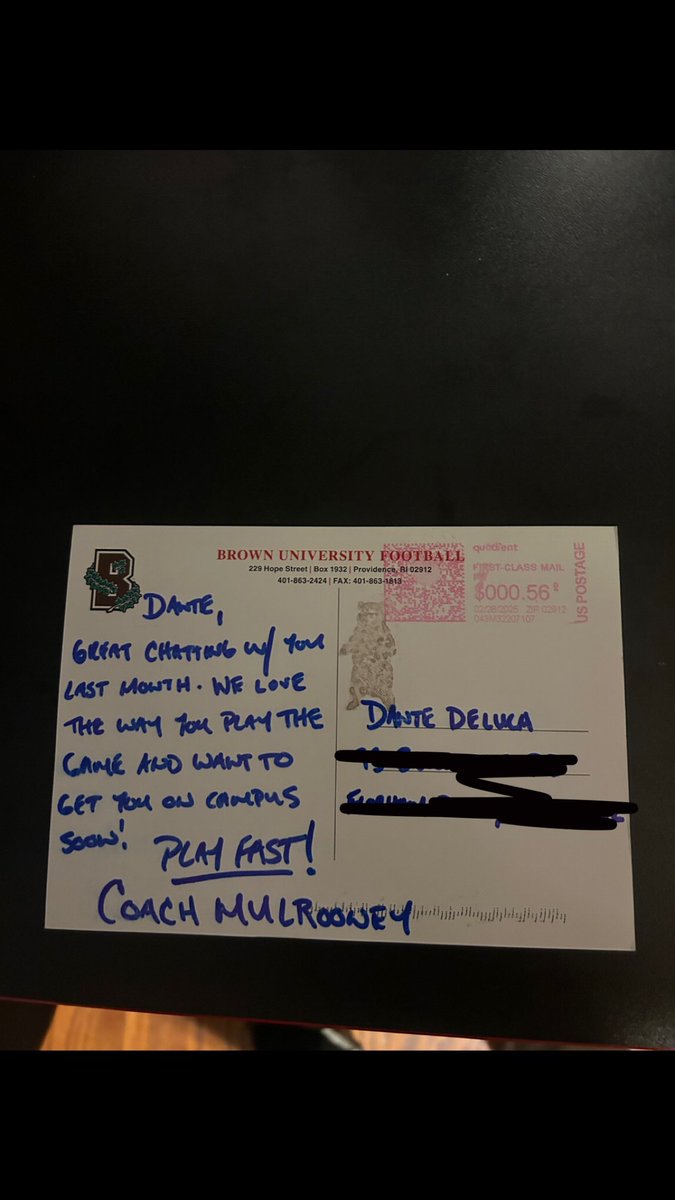 BROWN UNIVERSITY FOOTBALL
229 Hope Street | Box 1932 | Providence, RI 02912
401-863-2424 | FAX: 401-863-1813
quadient
FIRST-CLASS MAIL
$000.56
02/28/2025 ZIP 02912
043M32207107
US POSTAGE
B
DANTE,
GREAT CHATTING W/ YOU
LAST MONTH. WE LOVE
THE WAY YOU PLAY THE
GAME AND WANT TO
GET YOU ON CAMPUS
SOON!
PLAY FAST!
COACH MULROONEY
DANTE DELUCA